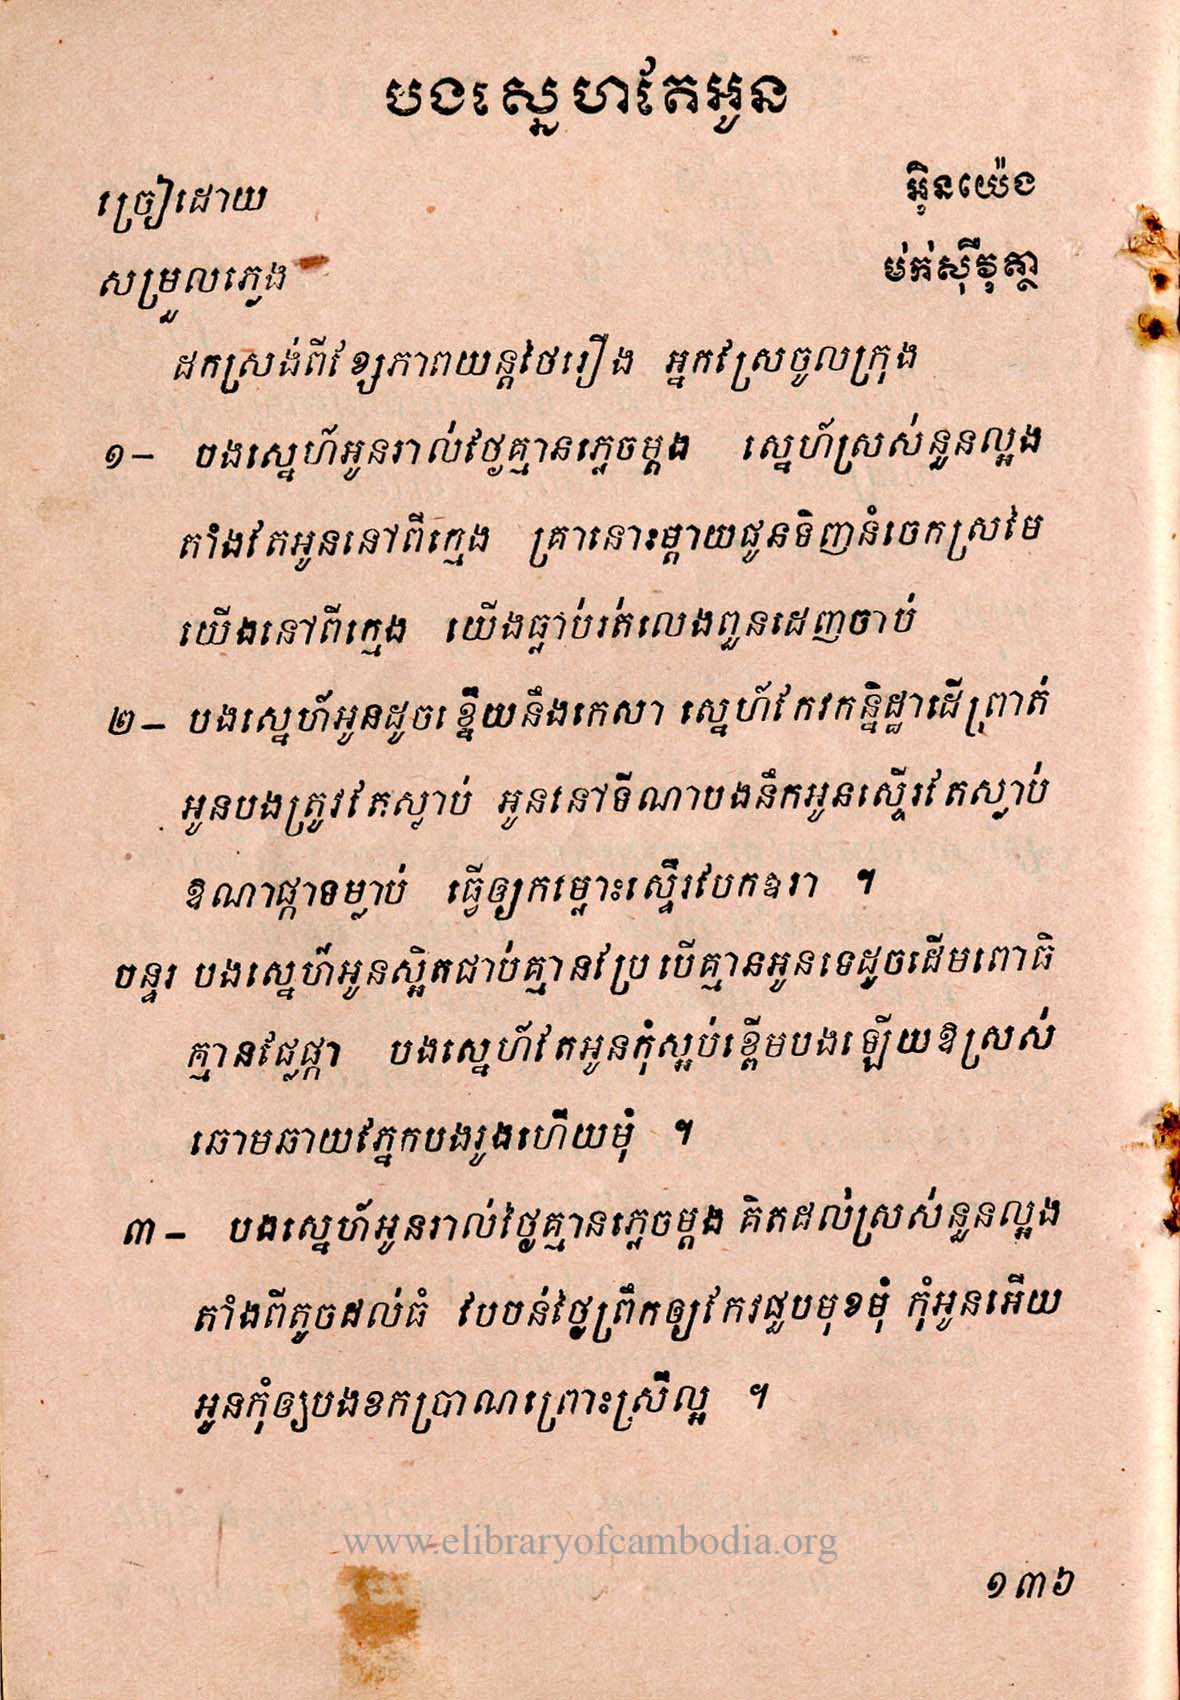 បងស្នេហតែអូន
ច្រៀដោយ អ៊ិនយ៉េង
សម្រួលភ្លេង ម៉ក់ស៊ីវុត្ថា
ដកស្រង់ពីខ្សែភាពយន្តថៃរឿង អ្នកស្រែចូលក្រុង
១– បងស្នេហ៍អូនរាល់ថ្ងៃគ្មានភ្លេចម្តង ស្នេហ៍ស្រស់នួនល្អង
តាំងតែអូននៅពីក្មេង គ្រានោះម្តាយជូនទិញនំចេកស្រមៃ
យើងនៅពីក្មេង យើងធ្លាប់រត់លេងពួនដេញចាប់
២– បងស្នេហ៍អូនដូចខ្នើយនឹងកេសា ស្នេហ៍កែវកន្និដ្ឋាដើព្រាត់
អូនបងត្រូវតែស្លាប់ អូននៅទីណាបងនឹកអូនស្ទើរតែស្លាប់
ឱណាផ្កាទម្លាប់ ធ្វើឲ្យកម្លោះស្ទើរបែកឧរា ។
បន្ទរ បងស្នេហ៍អូនស្អិតជាប់គ្មានប្រែ បើគ្មានអូនទេដូចដើមពោធិ
គ្មានផ្លែផ្កា បងស្នេហ៍តែអូនកុំស្អប់ខ្ពើមបងឡើយឱស្រស់
ឆោមឆាយភ្នែកបងរូងហើយមុំ ។
៣– បងស្នេហ៍អូនរាល់ថ្ងៃគ្មានភ្លេចម្តង គិតដល់ស្រស់នួនល្អង
តាំងពីតូចដល់ធំ បែបចន់ថ្ងៃព្រឹកឲ្យកែវជួបមុខមុំ កុំអូនអើយ
អូនកុំឲ្យបងខកប្រាណព្រោះស្រីល្អ ។
www.elibraryofcambodia.org
១៣៦